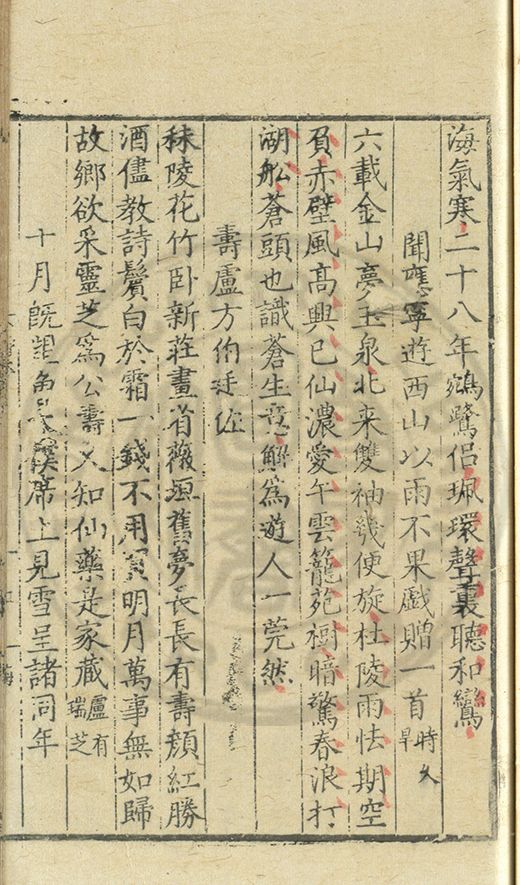 海氣寒二十八年鵷鷺侶珮環聲裏聽和鸞
聞應寧遊西山以雨不果戲贈一首時久旱
六載金山夢玉泉北来雙袖幾便旋杜陵雨怯期空
負赤壁風髙興已仙濃愛午雲籠苑樹暗驚春浪打
湖船蒼頭也識蒼生意解為遊人一莞然
壽盧方伯廷佐
秣陵花竹卧新莊畫省薇垣舊夢長長有壽顔紅勝
酒儘教詩鬢白於霜一錢不用買明月萬事無如歸
故鄉欲采靈芝為公壽又知仙藥是家藏盧有瑞芝
十月旣望席上見雪呈諸同年